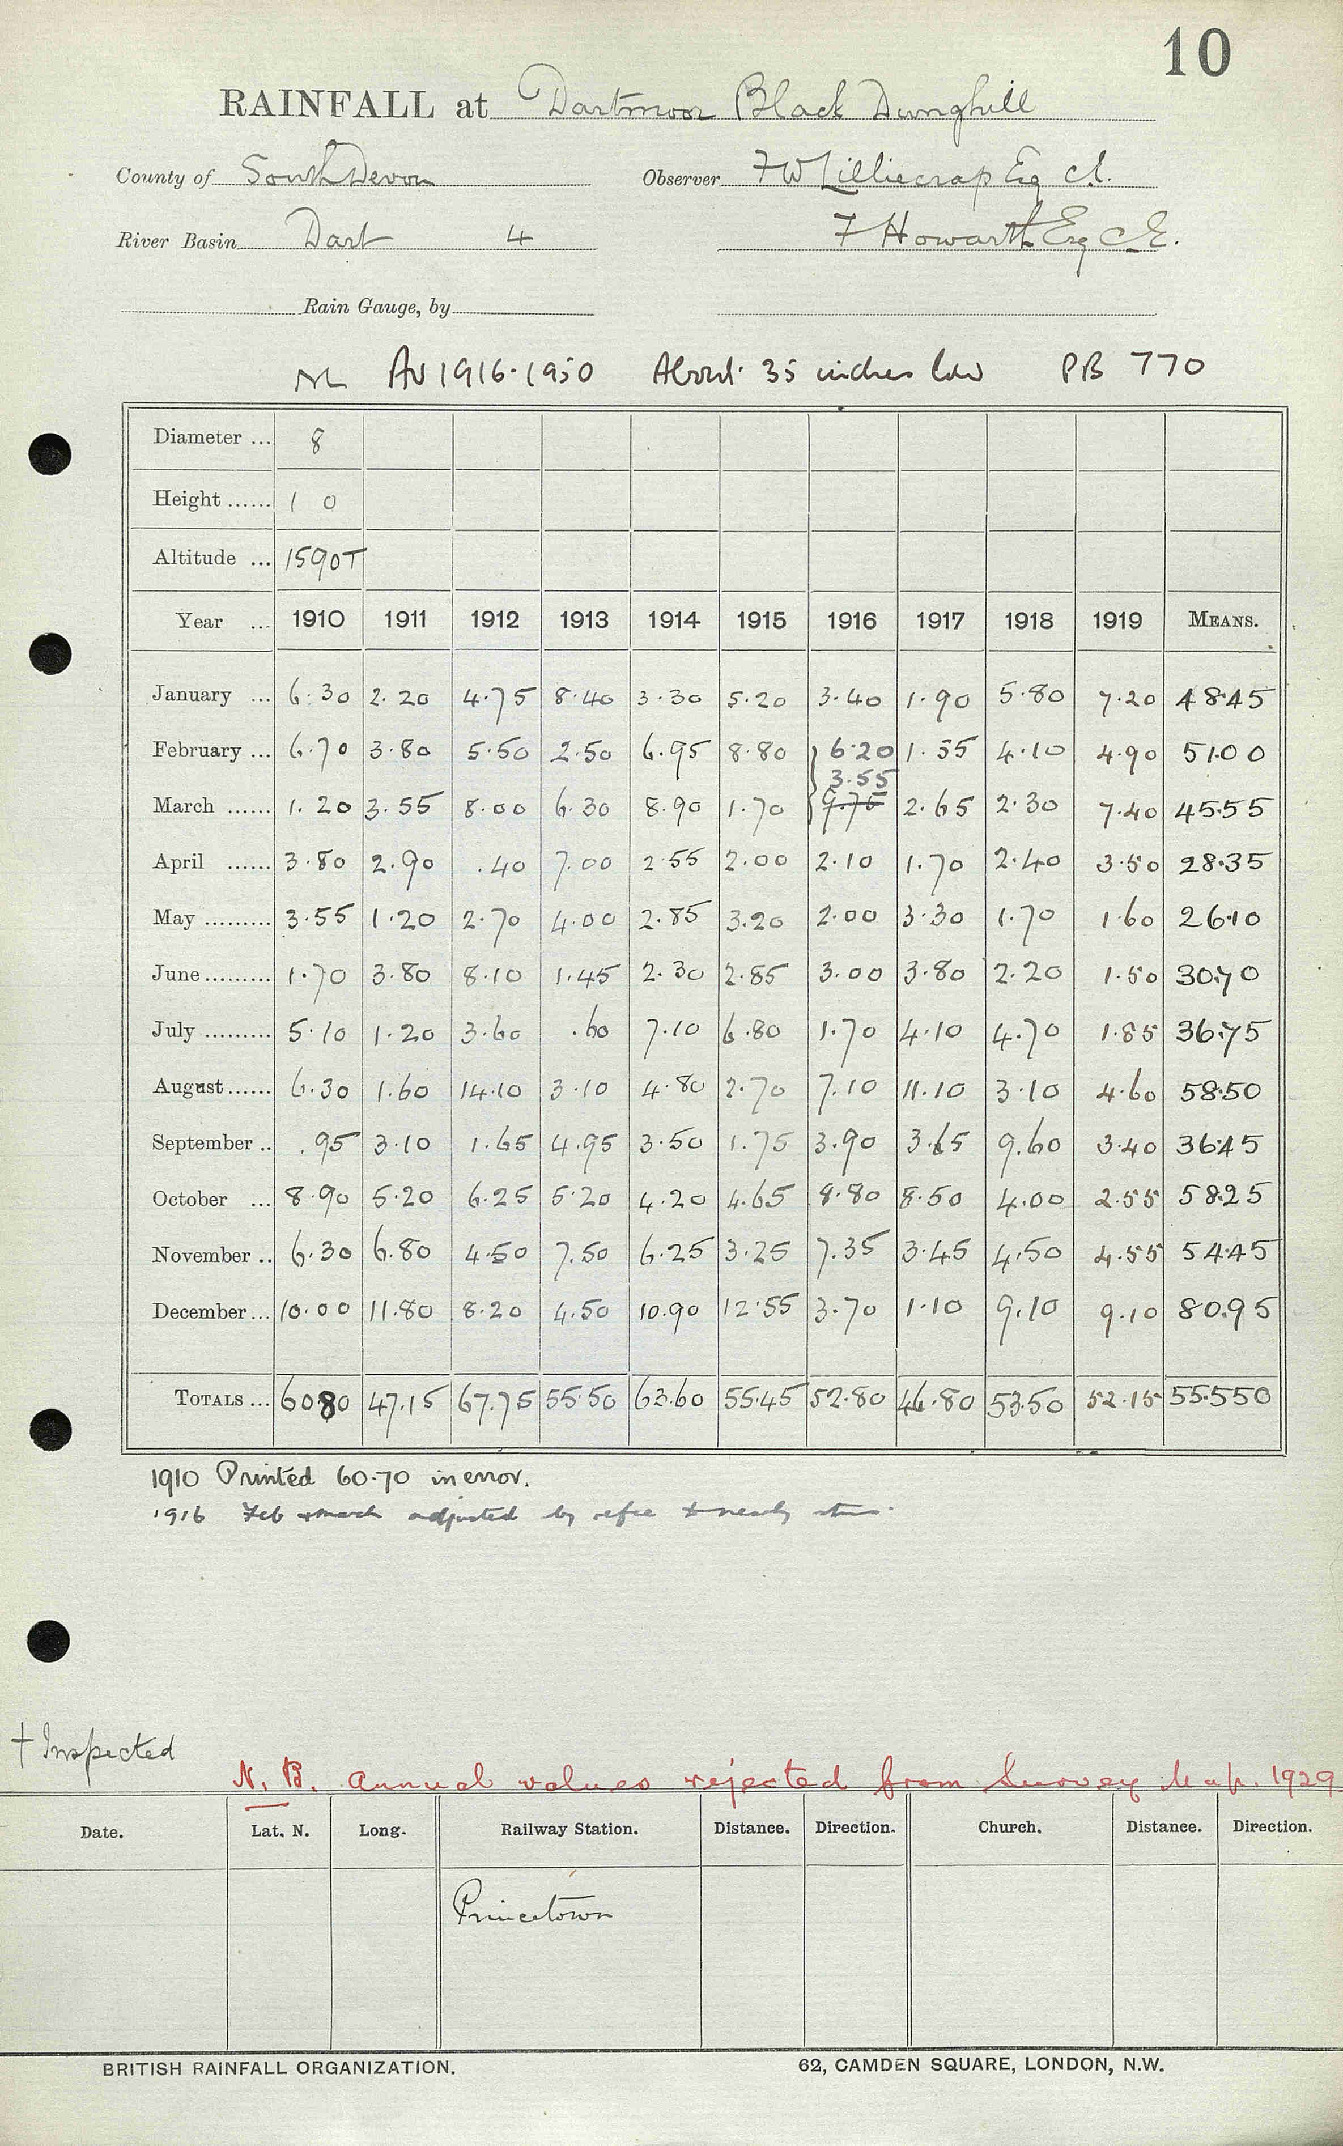 10
RAINFALL at Dartmoor Black Dunghill
County of South Devon Observer F W Lilliecrap Esq C.E.
River Basin Dart 4 F Howarth Esq C.E.
Rain Gauge, by
Av 1916-1950 About 35 inches low PB 770
Diameter ... 8
Height ...... 1 0
Altitude ... 1590T
Year ... 1910 1911 1912 1913 1914 1915 1916 1917 1918 1919 MEANS.
January ... 6.30 2.20 4.75 8.40 3.30 5.20 3.40 1.90 5.80 7.20 48.45
February ... 6.70 3.80 5.50 2.50 6.95 8.80 6.20 1.55 4.10 4.90 51.00
3.55
March ...... 1.20 3.55 8.00 6.30 8.90 1.70 9.75 2.65 2.30 7.40 45.55
April ...... 3.80 2.90 .40 7.00 2.55 2.00 2.10 1.70 2.40 3.50 28.35
May ......... 3.55 1.20 2.70 4.00 2.85 3.20 2.00 3.30 1.70 1.60 26.10
June ......... 1.70 3.80 8.10 1.45 2.30 2.85 3.00 3.80 2.20 1.50 30.70
July ......... 5.10 1.20 3.60 .60 7.10 6.80 1.70 4.10 4.70 1.85 36.75
August ...... 6.30 1.60 14.10 3.10 4.80 2.70 7.10 11.10 3.10 4.60 58.50
September .. .95 3.10 1.65 4.95 3.50 1.75 3.90 3.65 9.60 3.40 36.45
October ... 8.90 5.20 6.25 5.20 4.20 4.65 8.80 8.50 4.00 2.55 58.25
November .. 6.30 6.80 4.50 7.50 6.25 3.25 7.35 3.45 4.50 4.55 54.45
December ... 10.00 11.80 8.20 4.50 10.90 12.55 3.70 1.10 9.10 9.10 80.95
TOTALS ... 60.80 47.15 67.75 55.50 63.60 55.45 52.80 46.80 53.50 52.15 555.50
1910 Printed 60.70 in error.
1916 Feb & March adjusted by refce to nearby stns.
† Inspected
N.B. Annual values rejected from Survey Map. 1929
Date. Lat. N. Long. Railway Station. Distance. Direction. Church. Distance. Direction.
Princetown
BRITISH RAINFALL ORGANIZATION. 62, CAMDEN SQUARE, LONDON, N.W.